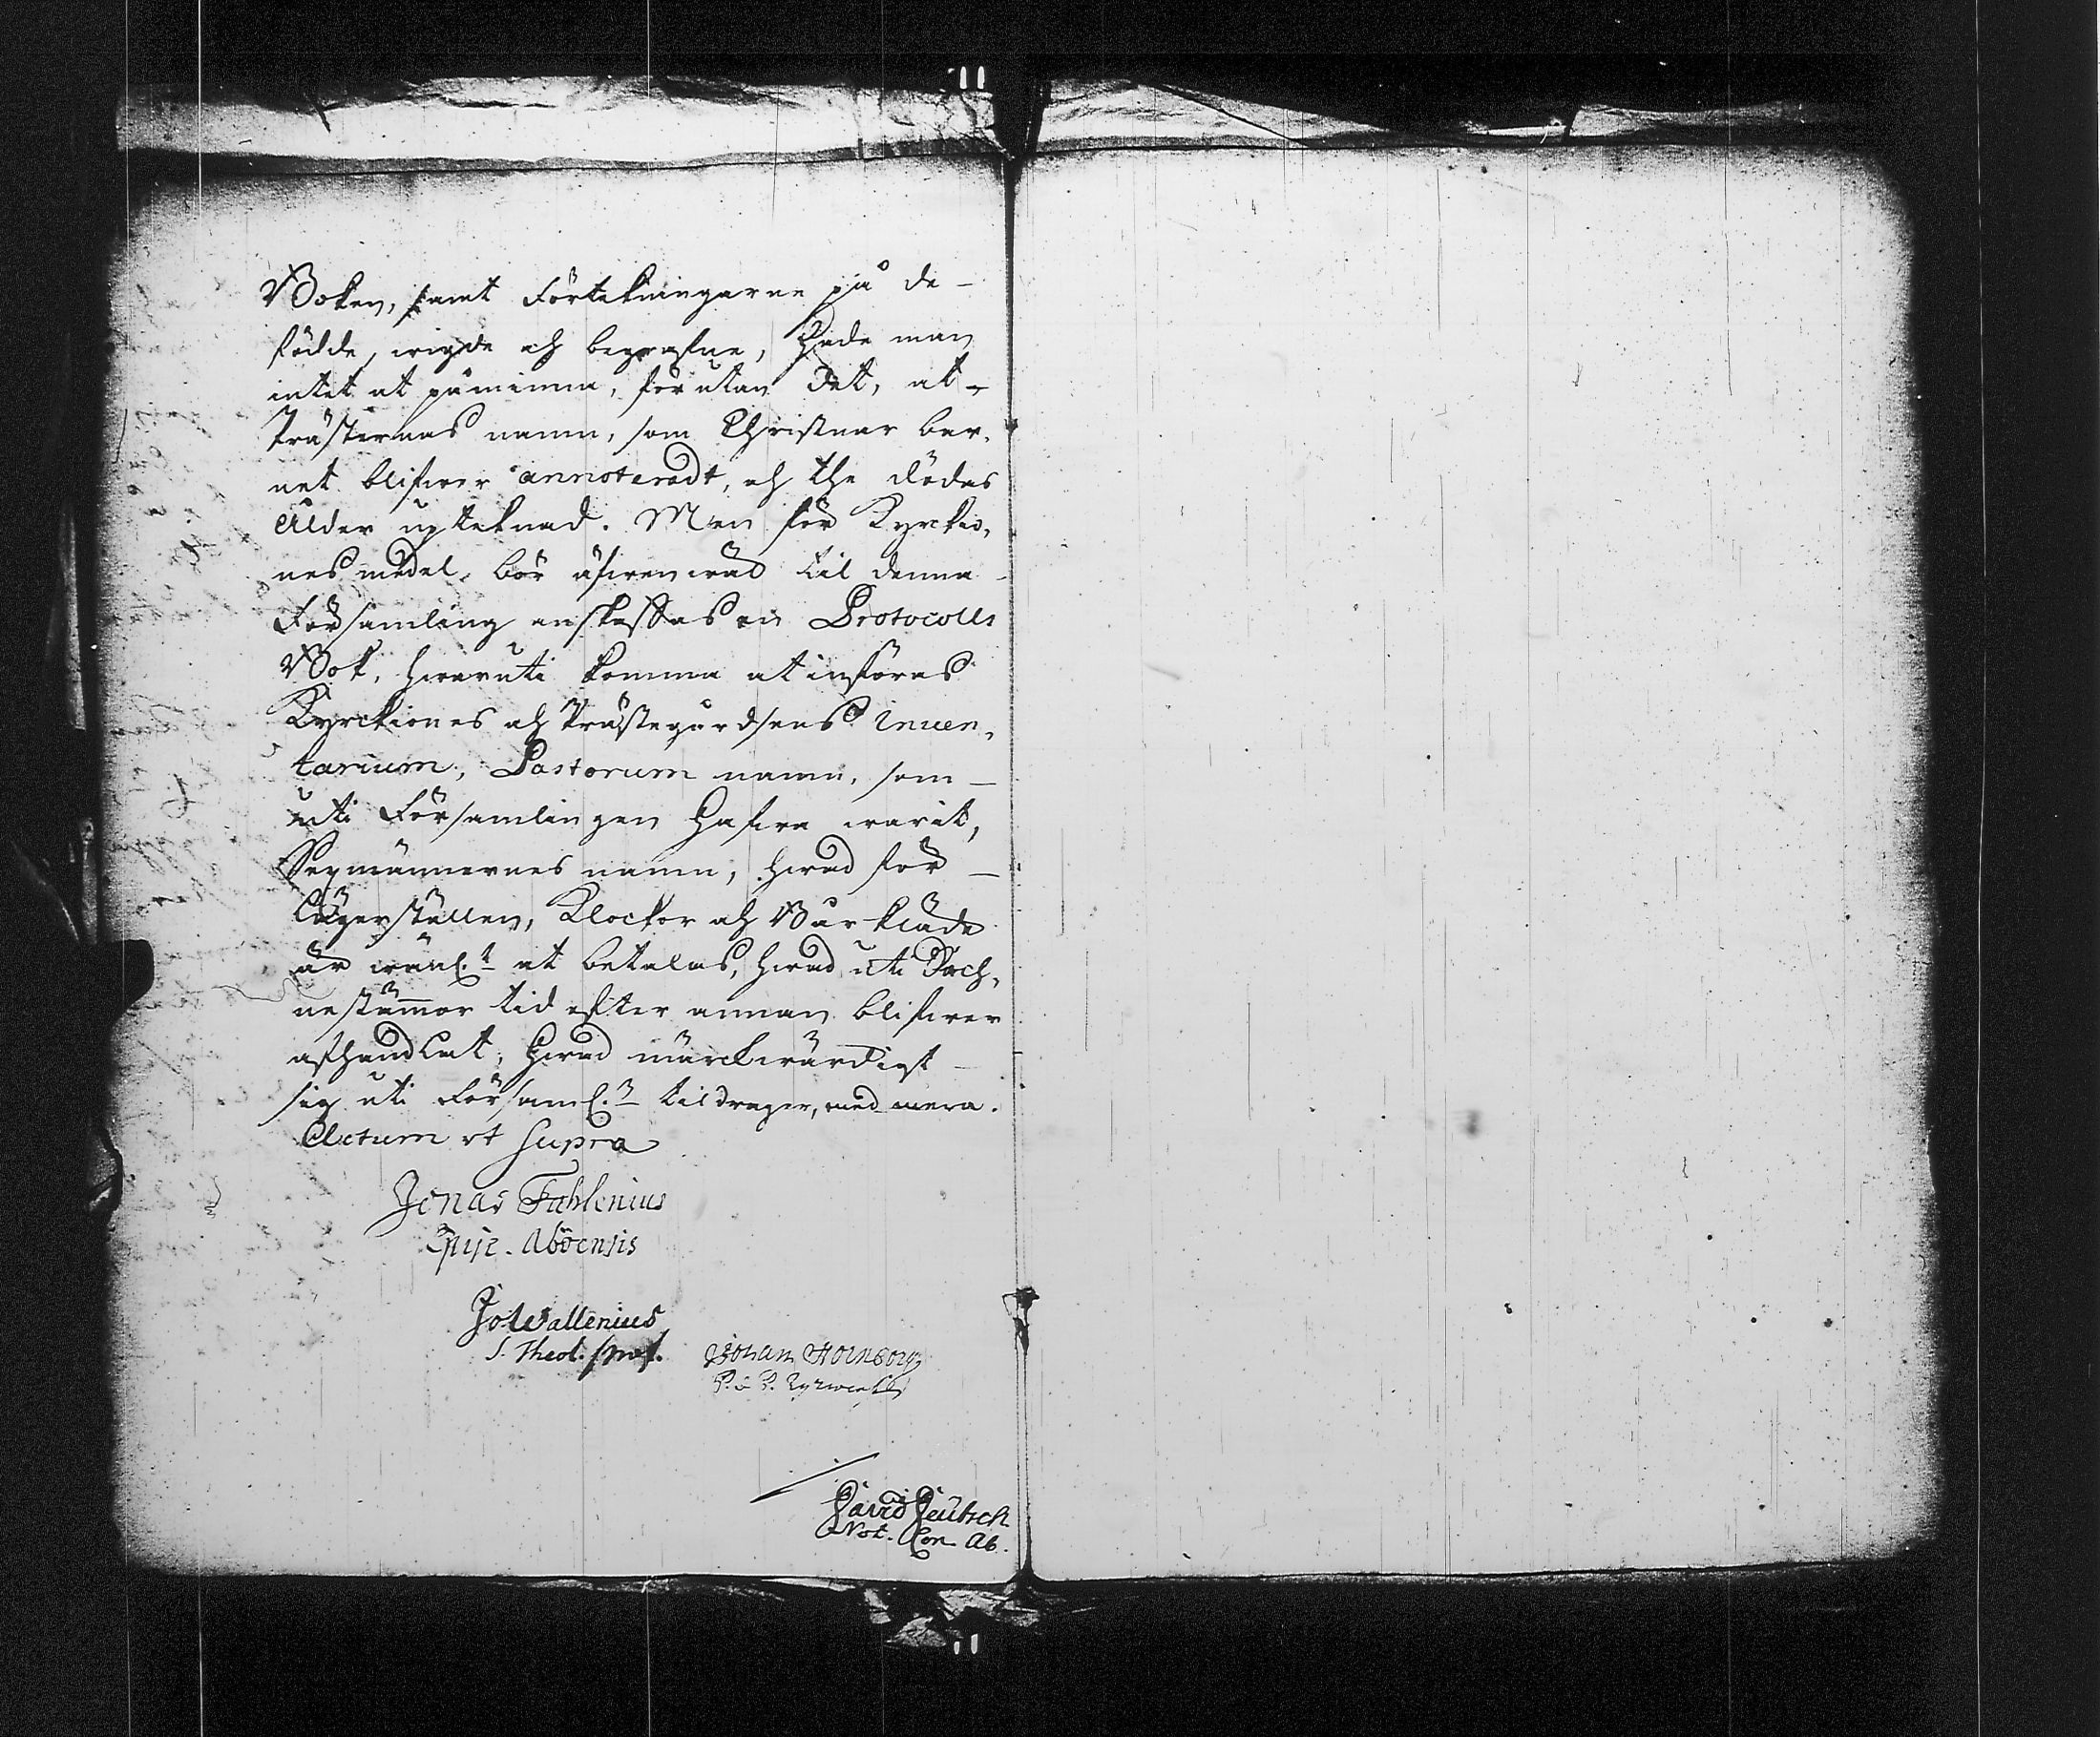 Boken, samt Förtekningarne på de-
födde, wigde och begrafne, Hade man
intet at påminna, förutan det, at-
Prästernas namn, som Christnar bar-
net blifwer annoteradt, och the dödas
ålder upteknad. Men för Kyrckio-
nes medel, bör äfwenwäl til denna
Församling anskaffas en Protocolls
Bok, hwaruti komma at införas
Kyrckiones och Prästegårdsens Inuen-
tarium, Pastorum namn, som-
uti Församlingen Hafwa warit,
Sexmännernes namn, hwad för-
lägerställen, Klockor och Bårkläde
är wänl:t at betalas, hwad uti Soch-
nestämmor tid efter annan blifwer
afhandlat, hwad märckwärdigt-
sig uti Församl:n tildrager, med mera.
Actum ut Supra
Jonas Fahlenius
Episc. Aböensis
Jo Wallenius
S. Theol. Prof.
Johan Hornborg
David Deutsch
Not. Con. Ab.